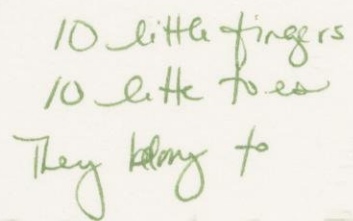 10 little fingers
10 little toes
They belong to